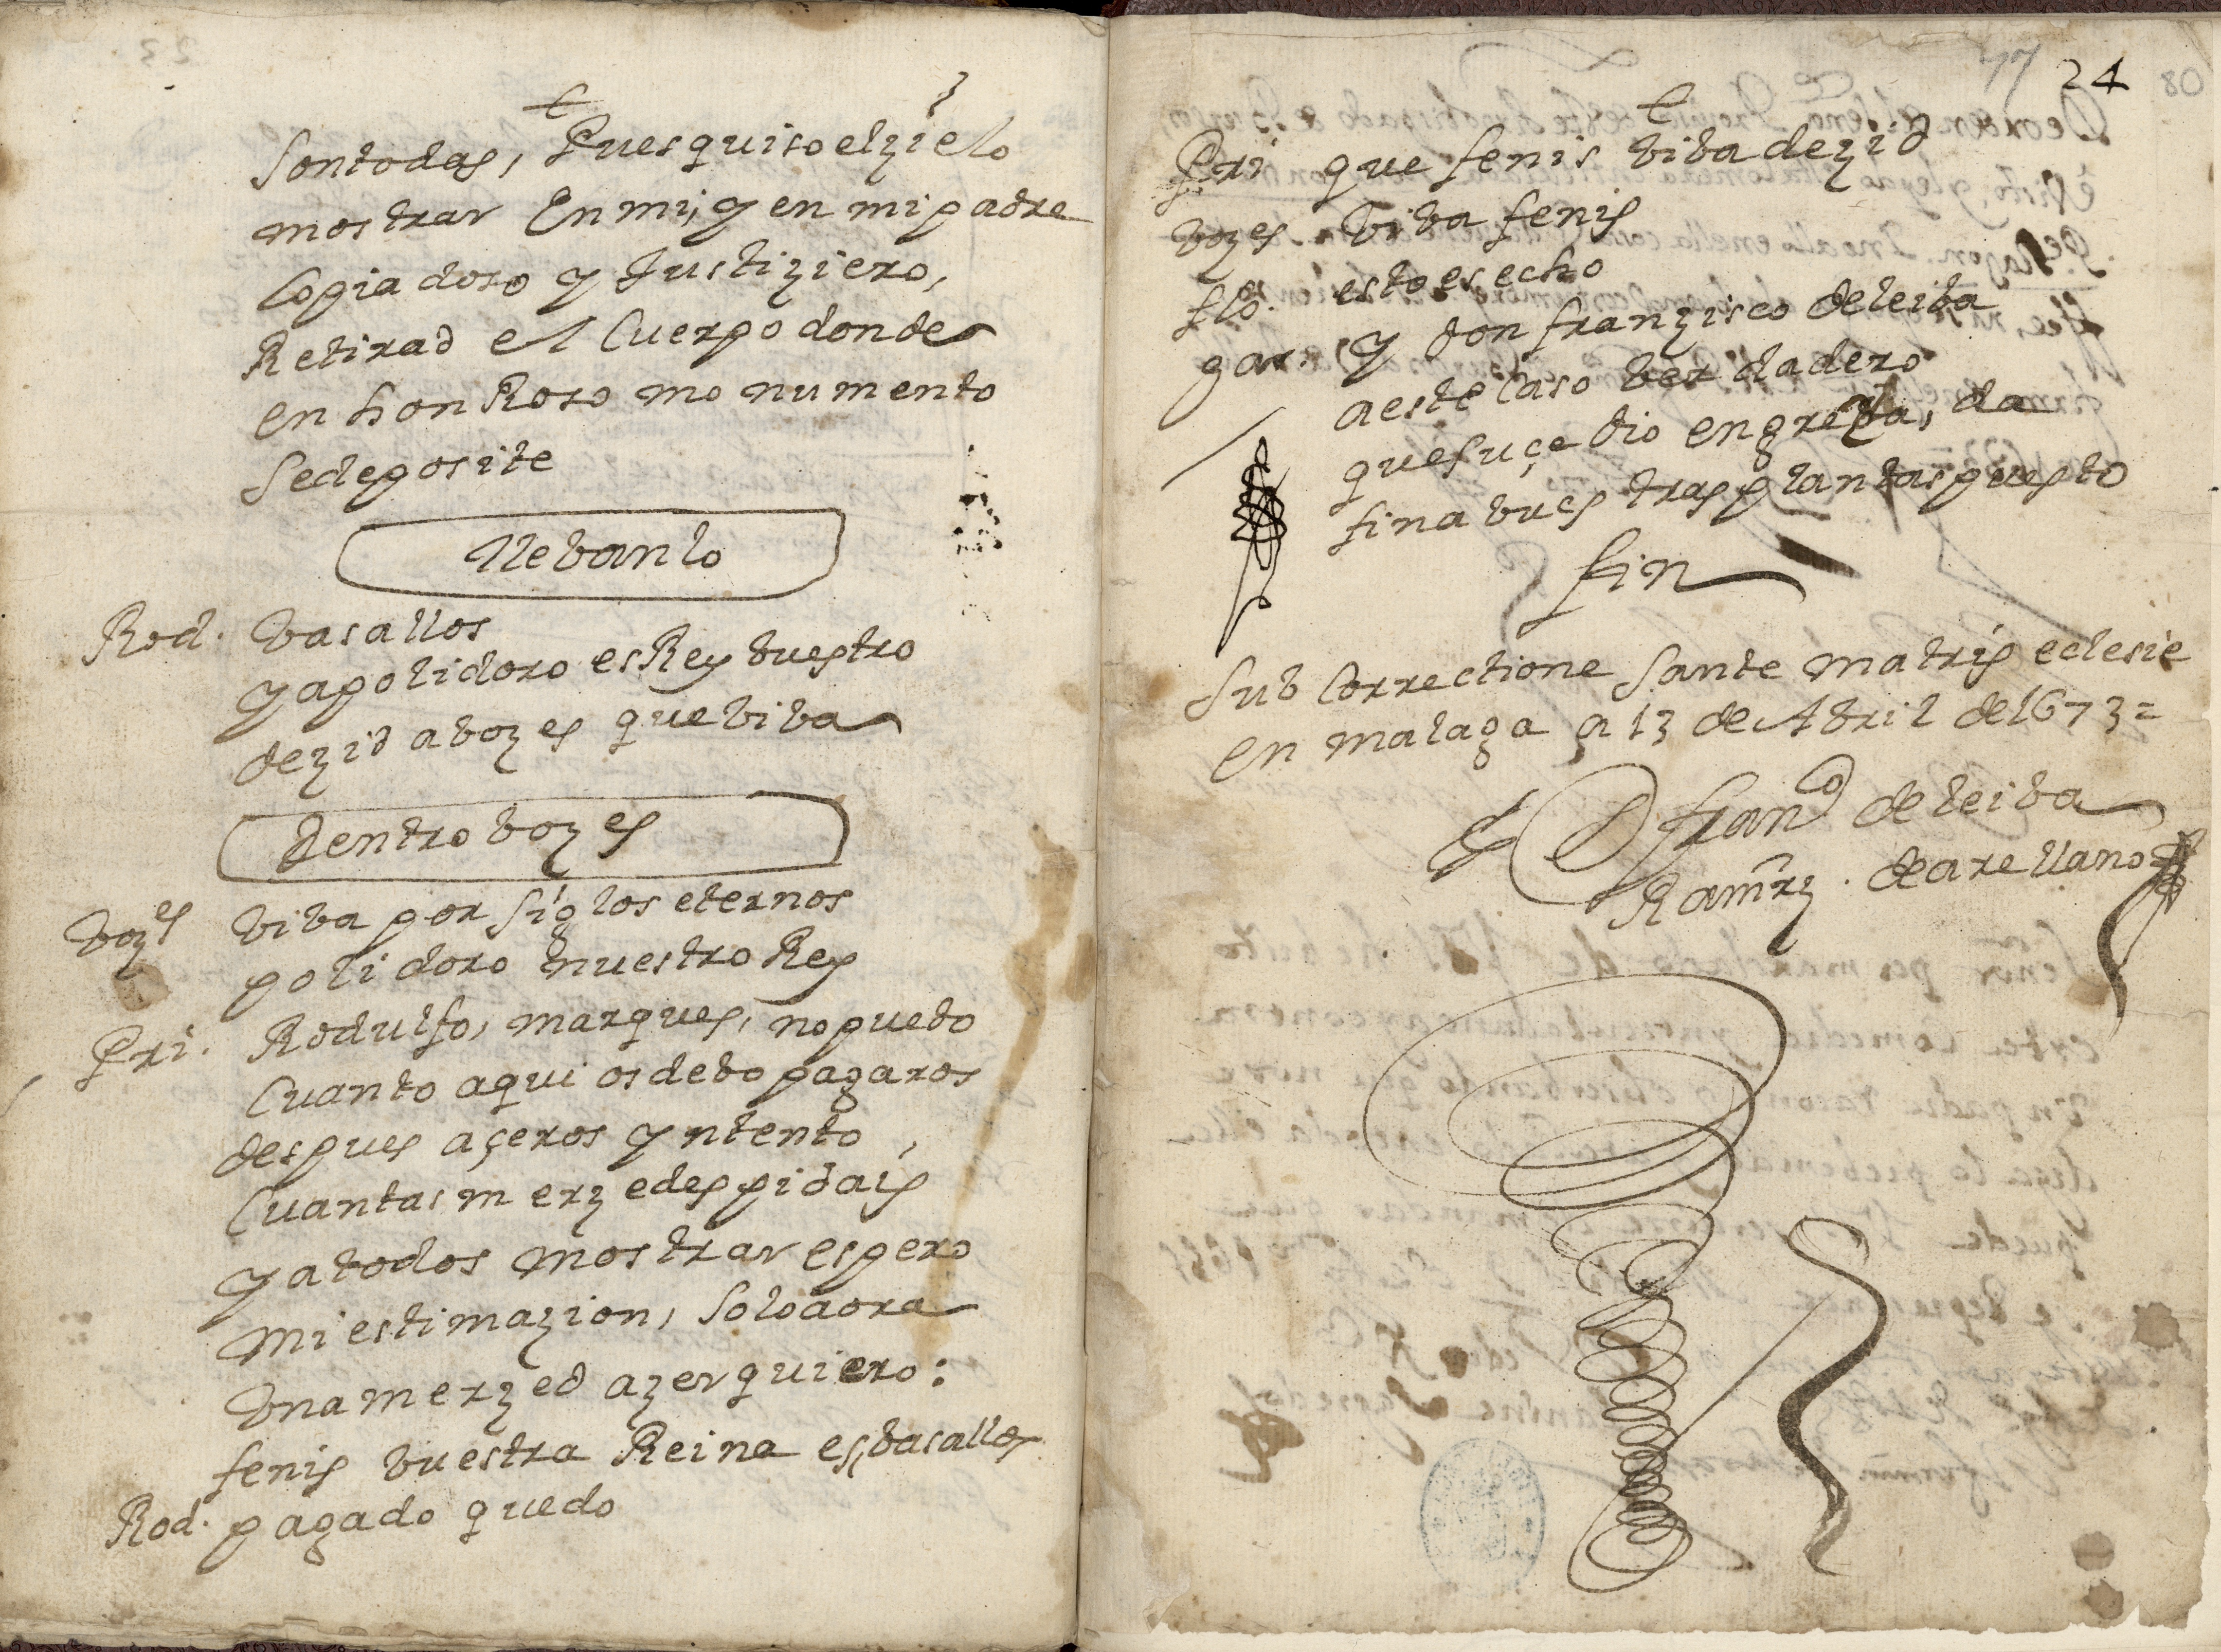 son todas, Pues quiso el zielo
mostrar En mi, y en mi padre
lo piadoso y Justiziero,
Retirad el Cuerpo donde
en honRoso monumento
se deposite
llebanlo
Rod. basallos
ya polidoro es Rey buestro
dezid a bozes que biba
dentro bozes
bozes biba por siglos eternos
polidoro nuestro Rey
Pri. Rodulfo, marques, no puedo
Cuanto aqui os debo pagaros
despues açeros yntento
Cuantas merzedes pidais
y a todos mostrar espero
mi estimazion, solo aora
Una merzed azer quiero:
fenis buestra Reina es, basallos
Rod. pagado quedo
24
Pri que fenis biba dezid
bozes. biba fenis
flo. esto es echo
gar. y don franzisco de leiba
a este Caso berdadero
que suçedio en greçia, da
fin a buestras plantas puesto
fin
Sub Correctione Sante matris eclesie
en malaga a 13 de Abril de 1673=
D franco de leiba
Ramrz. de arellano